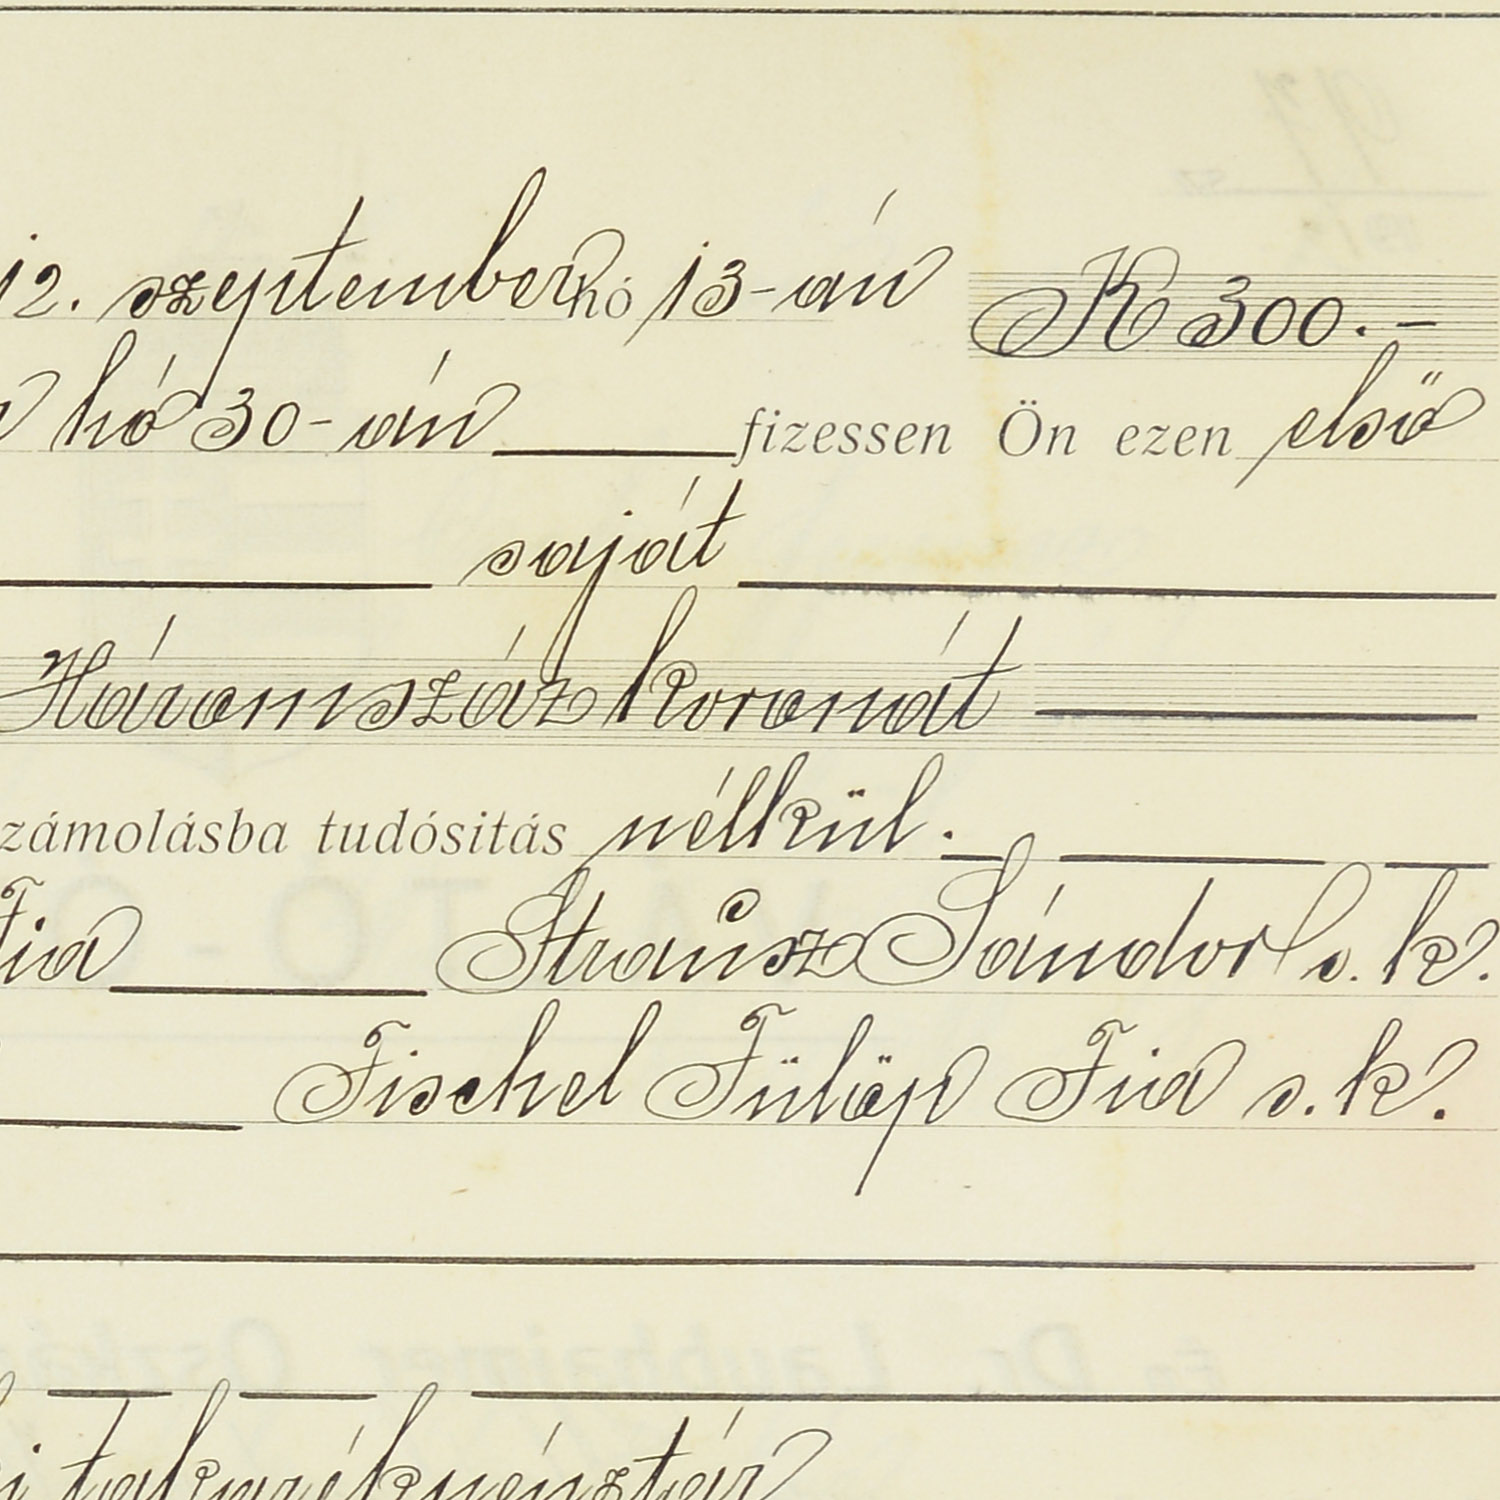 12. szeptember hó 13-án K 300.-
hó 30-án fizessen Ön ezen első
saját
Háromszáz koronát
zámolásba tudósitás nélkül.
Fia Strausz Sándor s. k.
Fischel Fülöp Fia s. k.
takarékpénztár